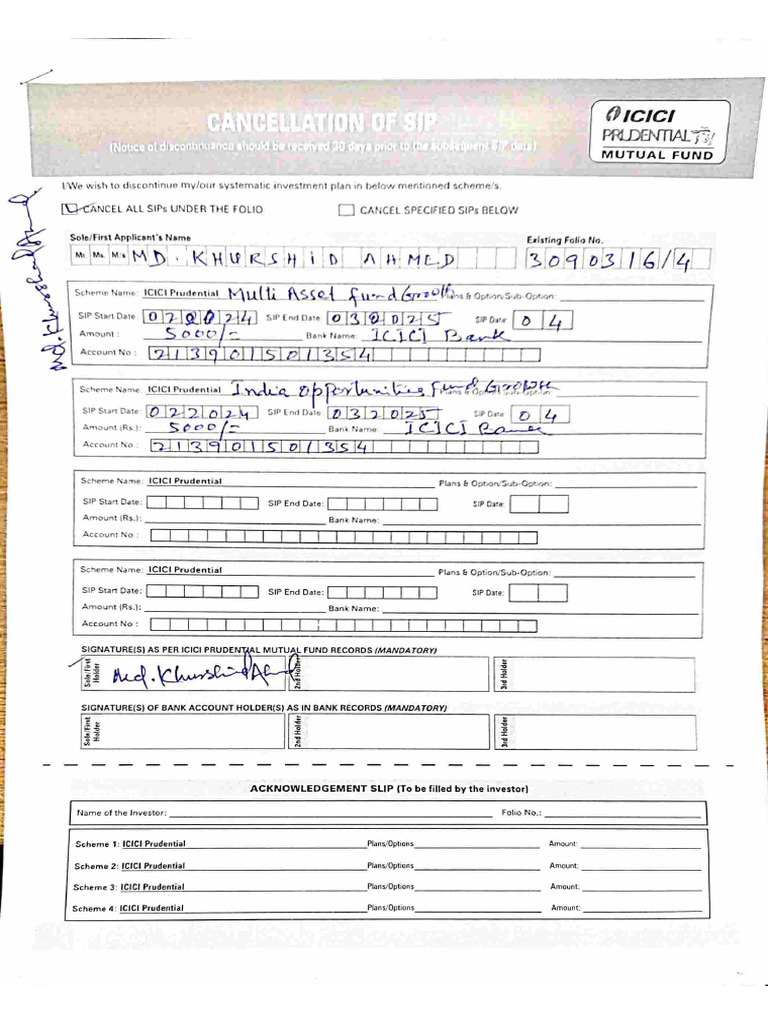 CANCELLATION OF SIP
(Notice of discontinuance should be received 30 days prior to the subsequent SIP date)
ICICI
PRUDENTIAL
MUTUAL FUND
I/We wish to discontinue my/our systematic investment plan in below mentioned scheme/s.
CANCEL ALL SIPs UNDER THE FOLIO CANCEL SPECIFIED SIPs BELOW
Sole/First Applicant's Name Existing Folio No.
Mr. Ms. M/s MD. KHURSHID AHMED 3090316/4
Scheme Name: ICICI Prudential Multi Asset Fund Growth Plans & Option/Sub-Option:
SIP Start Date: 022024 SIP End Date: 032025 SIP Date: 04
Amount : 5000/= Bank Name: ICICI Bank
Account No : 213901501354
Scheme Name: ICICI Prudential India Opportunities Fund Growth Plans & Option/Sub-Option:
SIP Start Date: 022024 SIP End Date: 032025 SIP Date 04
Amount (Rs.): 5000/= Bank Name: ICICI Bank
Account No : 213901501354
Scheme Name: ICICI Prudential Plans & Option/Sub-Option:
SIP Start Date: SIP End Date: SIP Date:
Amount (Rs.): Bank Name:
Account No :
Scheme Name: ICICI Prudential Plans & Option/Sub-Option:
SIP Start Date: SIP End Date: SIP Date:
Amount (Rs.): Bank Name:
Account No :
SIGNATURE(S) AS PER ICICI PRUDENTIAL MUTUAL FUND RECORDS (MANDATORY)
Sole/First Holder Md. Khurshid Ahmed 2nd Holder 3rd Holder
SIGNATURE(S) OF BANK ACCOUNT HOLDER(S) AS IN BANK RECORDS (MANDATORY)
Sole/First Holder 2nd Holder 3rd Holder
ACKNOWLEDGEMENT SLIP (To be filled by the investor)
Name of the Investor: Folio No.:
Scheme 1: ICICI Prudential Plans/Options Amount:
Scheme 2: ICICI Prudential Plans/Options Amount:
Scheme 3: ICICI Prudential Plans/Options Amount:
Scheme 4: ICICI Prudential Plans/Options Amount:
Md. Khurshid Ahmed